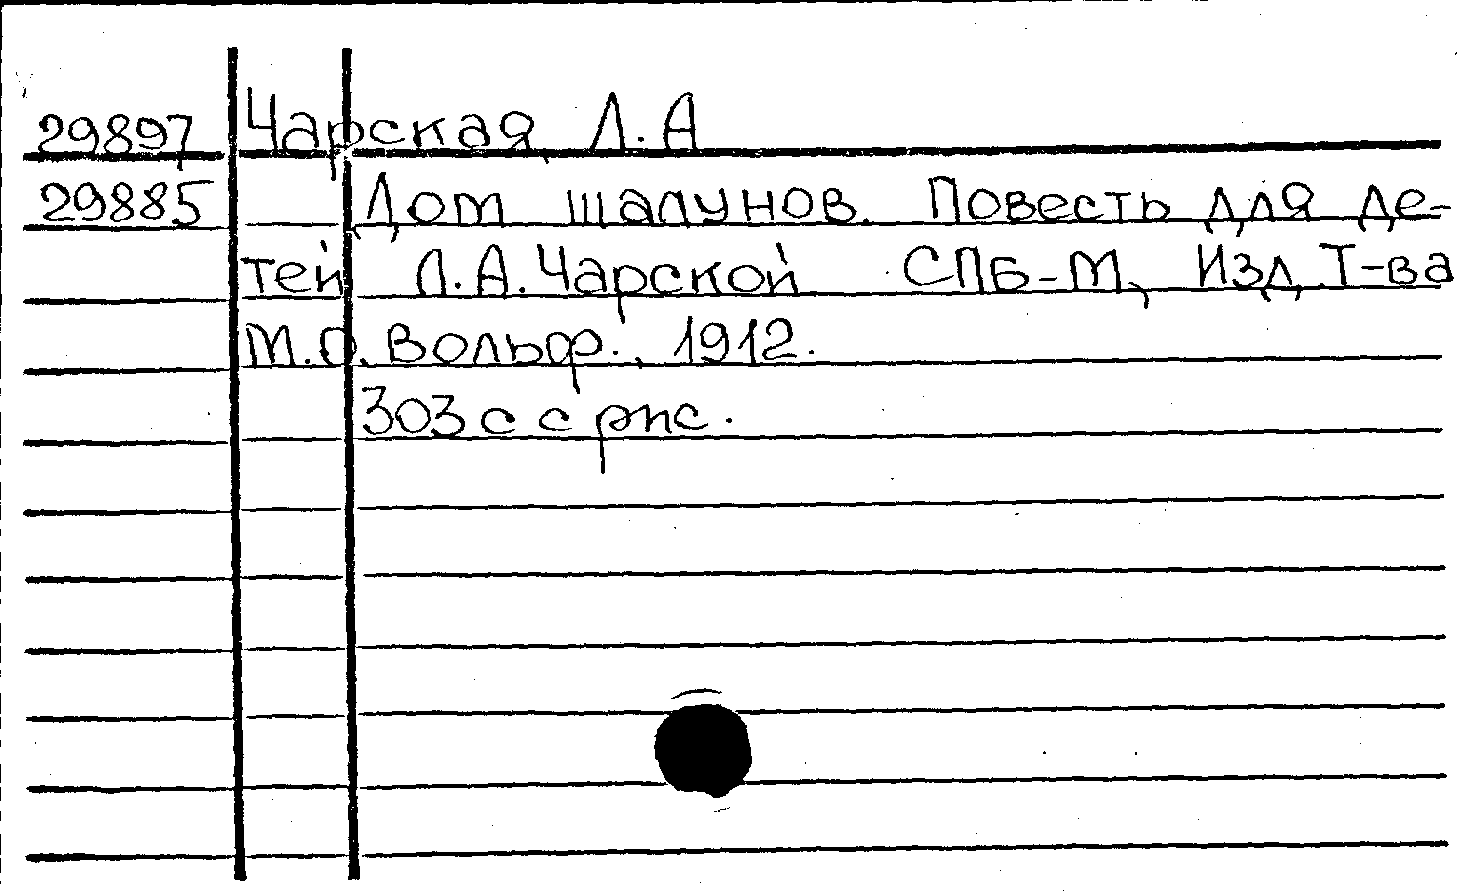 29897 Чарская, Л.А
29885 Дом шалунов. Повесть для де-
тей Л.А.Чарской СПБ-М, Изд. Т-ва
М.О. Вольф., 1912.
303 с с рис.